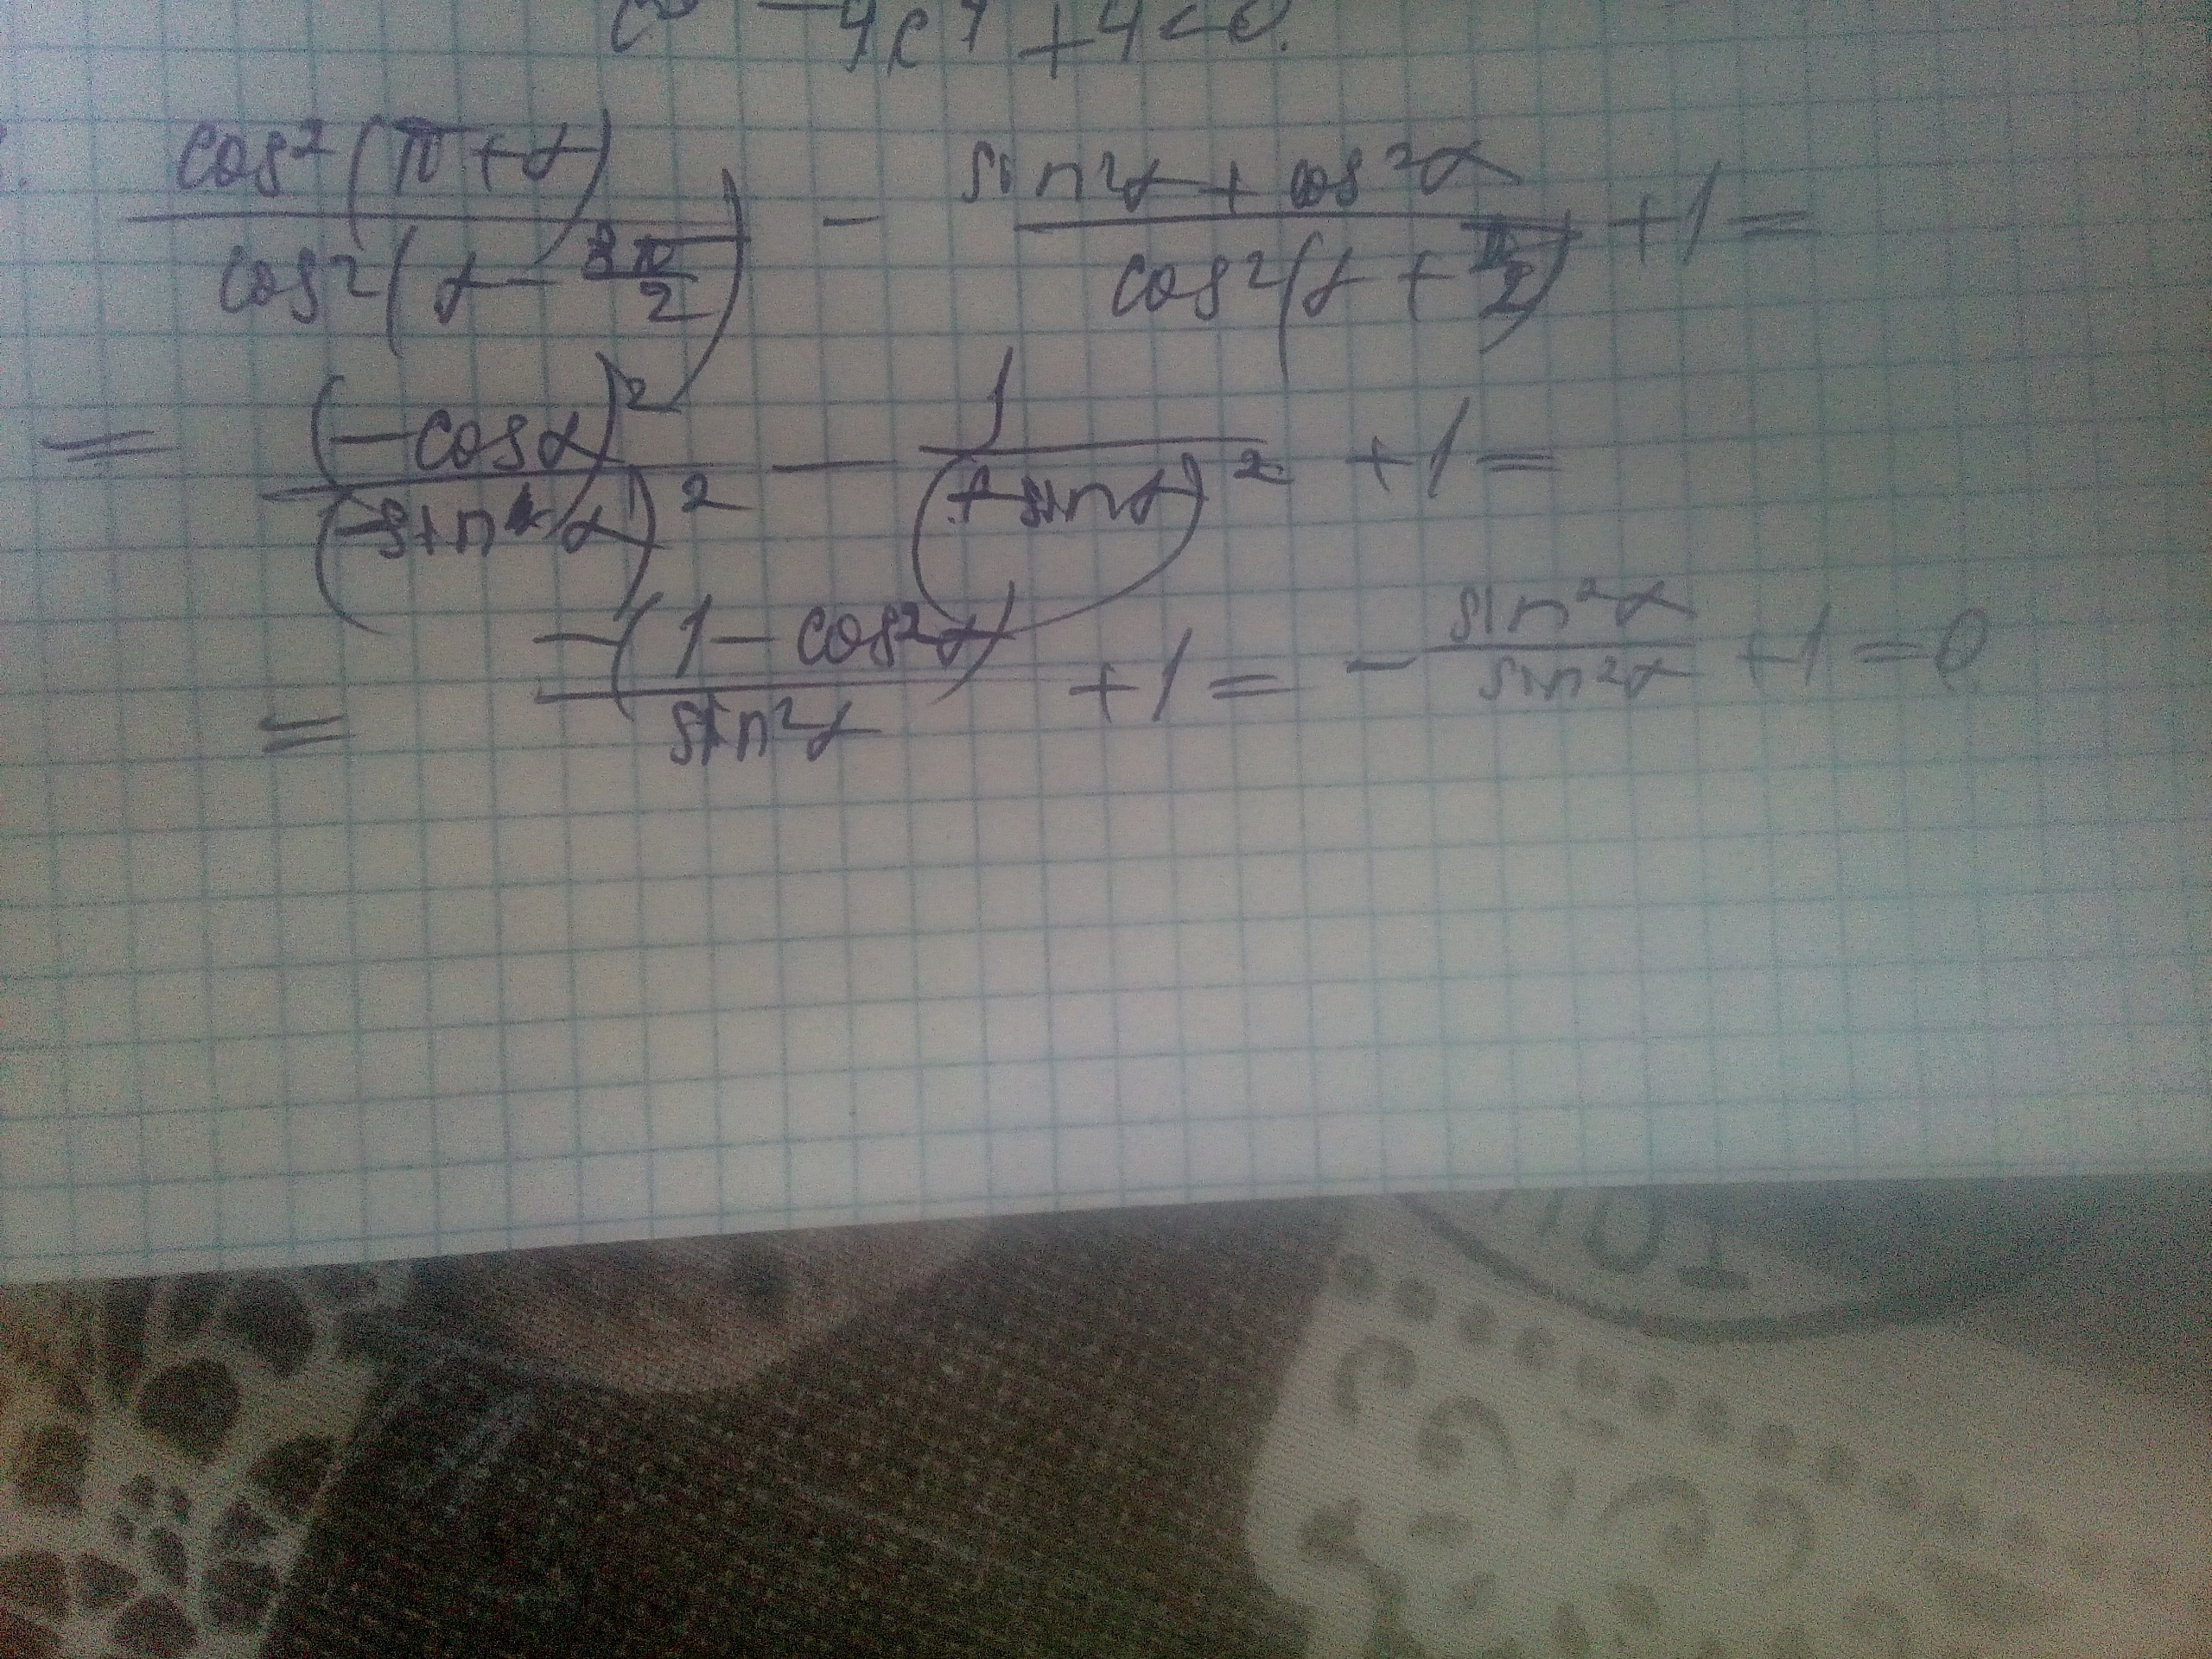 - 4c⁴ + 4 < 0.
cos²(π+α)/cos²(α - 3π/2) - sin²α + cos²α/cos²(α + π/2) + 1 =
= (-cosα)²/(-sinα)² - 1/(-sinα)² + 1 =
= -(1 - cos²α)/sin²α + 1 = - sin²α/sin²α + 1 = 0